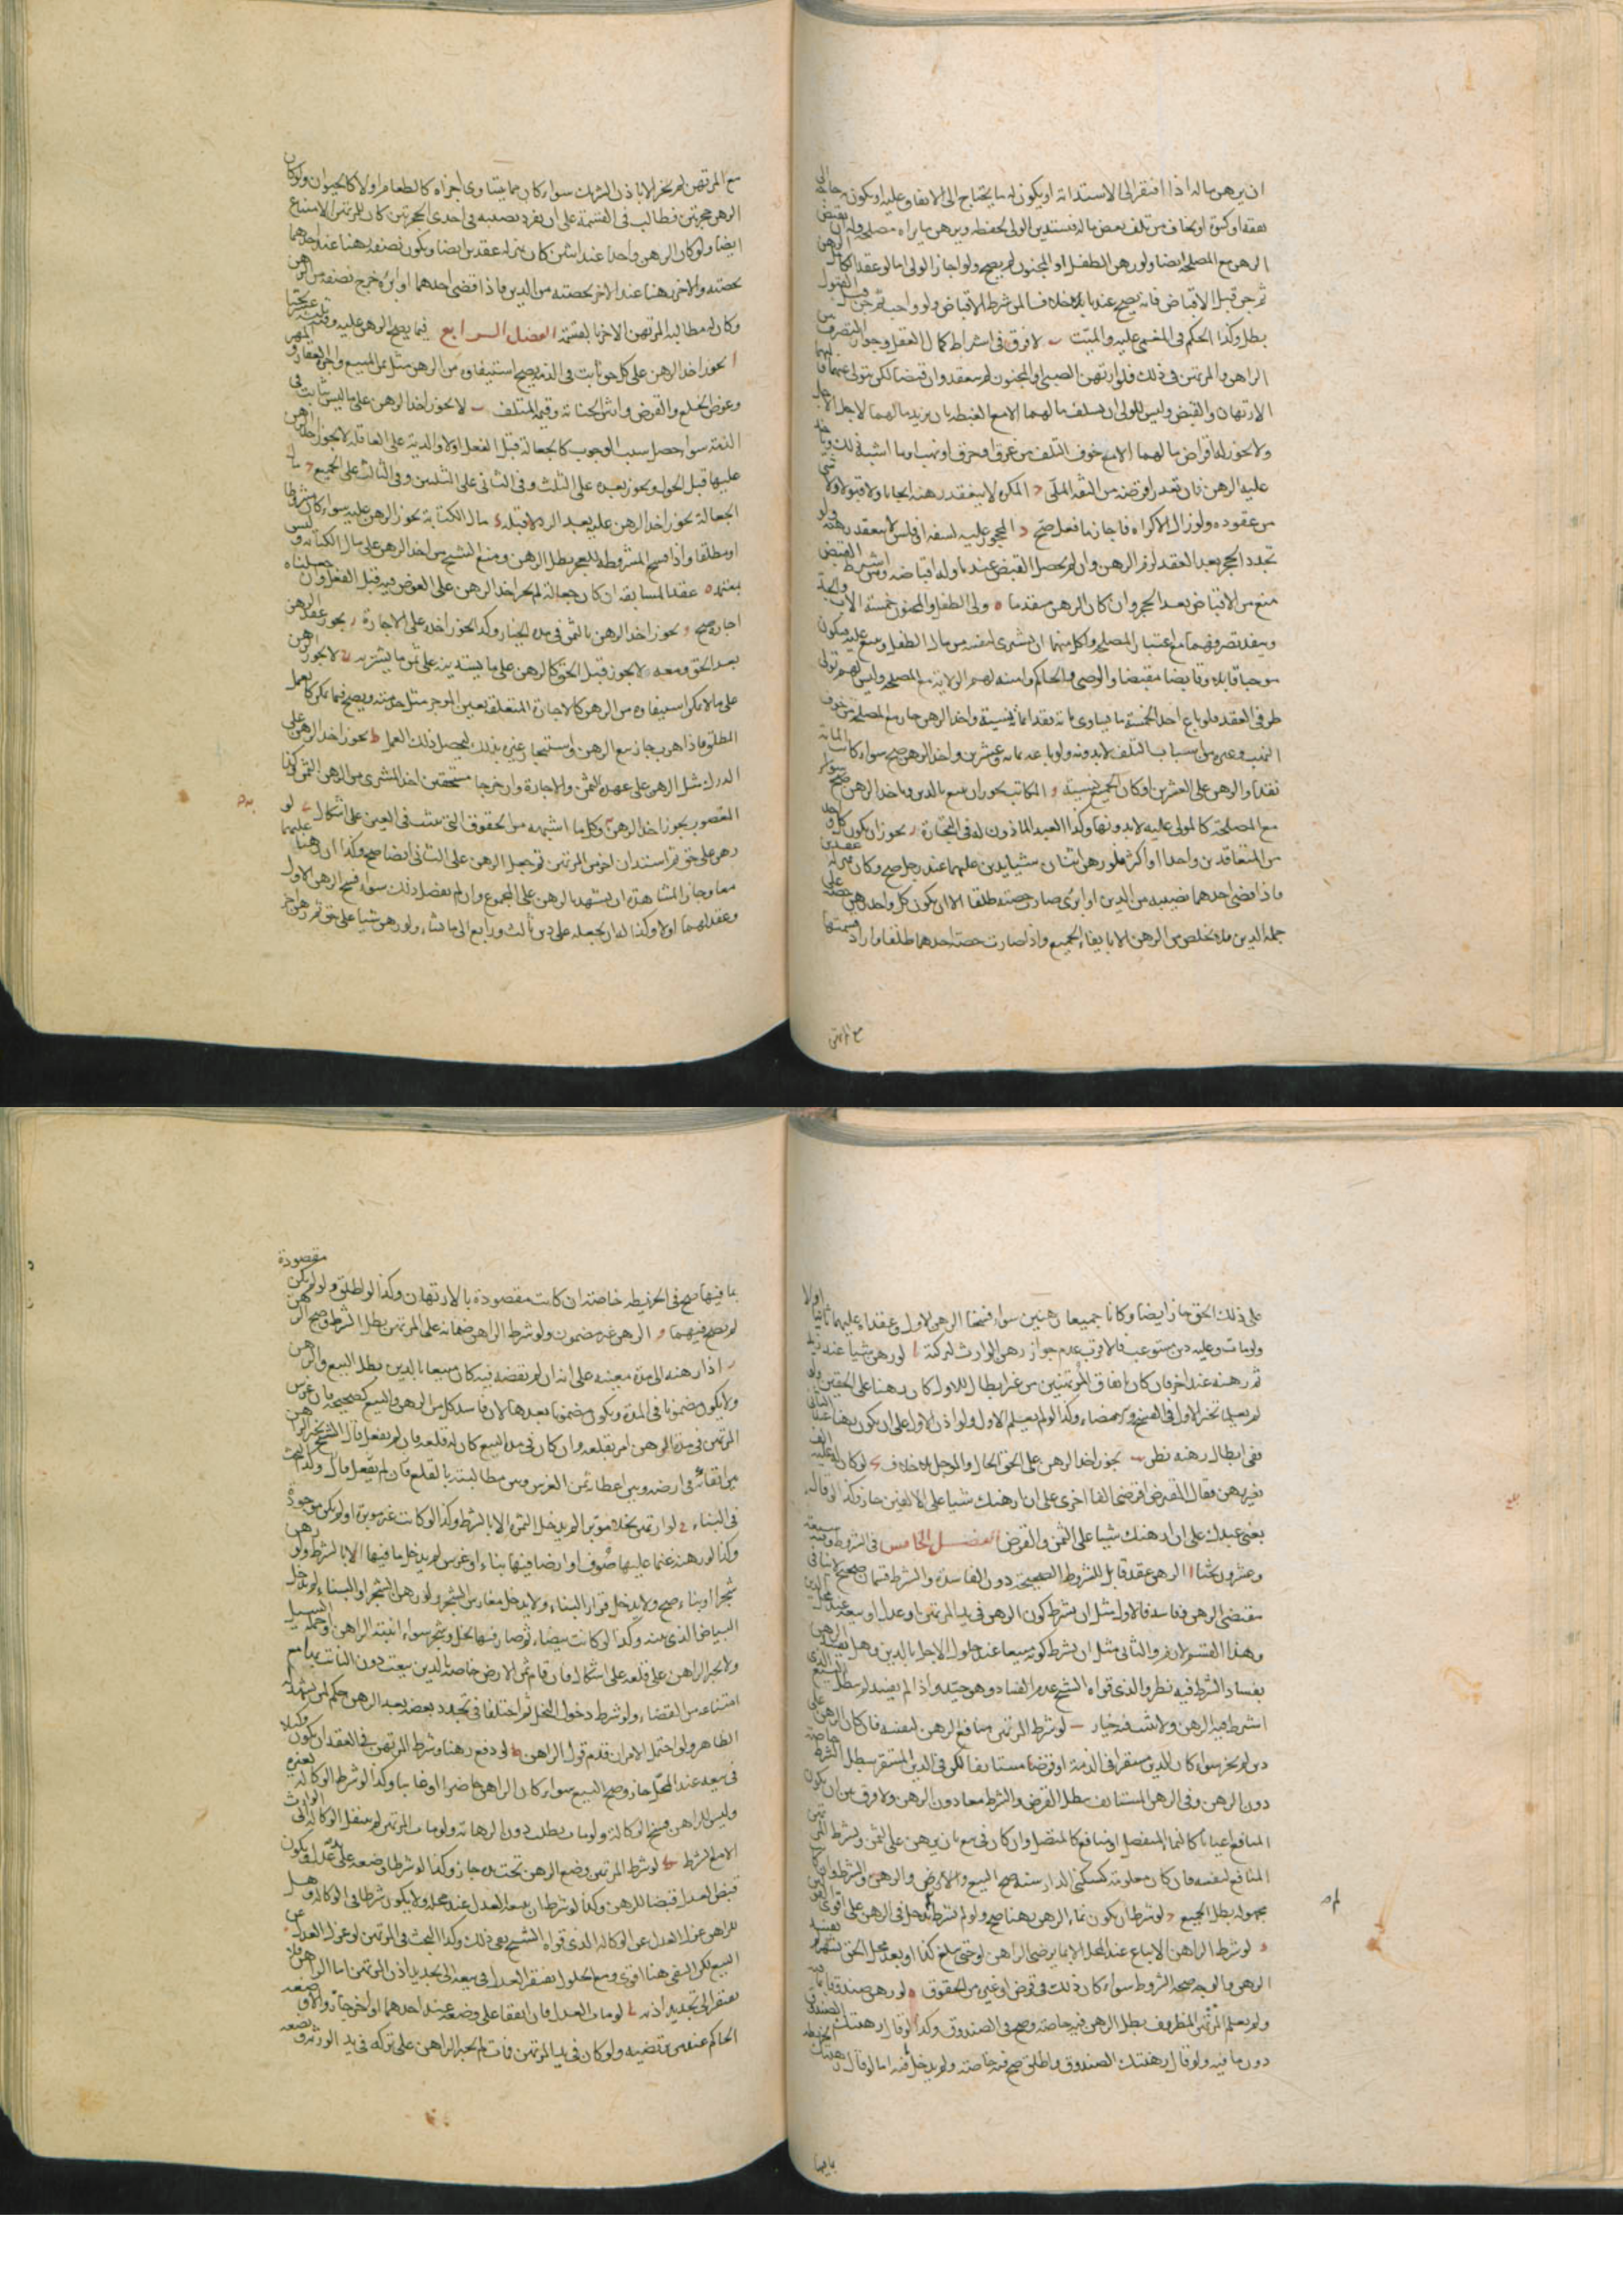 ان يرهن ماله اذا افتقر الى الاستدانة او يكون له ما يحتاج الى الانفاق عليه او يكون به حاجة الى
نفقة او كسوة او يخاف من تلف بعض ماله فيستدين الولي لحفظه ويرهن ما يراه مصلحة وله ان يقبض
الرهن مع المصلحة ايضا ولو رهن الطفل او المجنون لم يصح ولو اجاز الولي اما لو عقد الكامل الرهن
ثم جن قبل الاقباض فانه يصح عندنا خلافا لمن شرط الاقباض ولو واجب ثم جن قبل القبول
بطل وكذا الحكم في المغمى عليه والميت ب لا فرق في اشتراط كمال العقل وجواز التصرف بين
الراهن والمرتهن في ذلك فلو ارتهن الصبي او المجنون لم ينعقد وان قبضا لكن يتولى عنهما
الارتهان والقبض وليس للولي ان يسلف مالهما الا مع الغبطة بان يزيد مالهما لاجل الاجل
ولا يجوز له اقراض مالهما الا مع خوف التلف من غرق او حرق او نهب وما اشبه ذلك وياخذ
عليه الرهن فان تعذر اقرضه من الثقة الملي ج المكره لا ينعقد رهنه ايجابا ولا قبولا ولا شي
من عقوده ولو زال الاكراه فاجاز ما فعل صح د المحجور عليه لسفه او فلس لا ينعقد رهنه ولو
تجدد الحجر بعد العقد لزم الرهن وان لم يحصل القبض عندنا وله اقباضه ومن اشترط القبض
منع من الاقباض بعد الحجر وان كان الرهن متقدما ه ولي الطفل والمجنون خمسة الاب والجد
وينفذ تصرفهما مع اعتبار المصلحة ولكل منهما ان يشتري لنفسه من مال الطفل ويبيع عليه فيكون
موجبا قابلا وقابضا مقبضا والوصي والحاكم وامينه لهم الولاية مع المصلحة وليس لهم تولي
طرفي العقد فلو باع احد الخمسة ما يساوي مائة نقدا بمائة نسيئة واخذ الرهن جاز مع المصلحة من خوف
النهب وغيره من اسباب التلف لا بدونه ولو باعه بمائة وعشرين واخذ الرهن صح سواء كانت المائة
نقدا والرهن على العشرين او كان الجميع نسيئة و المكاتب يجوز ان يبيع بالدين وياخذ الرهن
مع المصلحة كالمولى عليه لا بدونها وكذا العبد الماذون له في التجارة ز يجوز ان يكون كل واحد
من المتعاقدين واحدا او اكثر فلو رهن اثنان شيئا بدين عليهما عند رجل صح وكان بمنزلة عقدين
فاذا قضى احدهما نصيبه من الدين او ابرئ صارت حصته طلقا الا ان يكون كل واحد رهن حصته على
جملة الدين فلا يخلص من الرهن الا بايفاء الجميع واذا صارت حصة احدهما طلقا واراد قسمتها
مع المرتهن
مع المرتهن لم يجز الا باذن الشريك سواء كان مما يتساوى اجزاه كالطعام او لا كالحيوان ولو كان
الرهن حجرتين فطالب في القسمة على ان يفرد نصيبه في احدى الحجرتين كان للمرتهن الامتناع
ايضا ولو كان الرهن واحدا عند اثنين كان بمنزلة عقدين ايضا ويكون نصفه رهنا عند احدهما
بحصته والاخر رهنا عند الاخر بحصته من الدين فاذا قضى احدهما او ابرئ خرج نصفه من الرهن
وكان له مطالبة المرتهن الاخر بالقسمة الفصل الرابع فيما يصح الرهن عليه وفيه ثلثة عشر بحثا
ا يجوز اخذ الرهن على كل حق ثابت في الذمة يصح استيفاوه من الرهن مثل ثمن المبيع واجرة العقار والمهر
وعوض الخلع والقرض وارش الجناية وقيمة المتلف ب لا يجوز اخذ الرهن على ما ليس بثابت في
الذمة سواء حصل سبب الوجوب كالجعالة قبل الفعل او لا والدية على العاقلة لا يجوز اخذ الرهن
عليها قبل الحول ويجوز بعده على الثلث وفي الثاني على الثلثين وفي الثالث على الجميع ج مال
الجعالة يجوز اخذ الرهن عليه بعد الرد لا قبله د مال الكتابة يجوز الرهن عليه سواء كانت مشروطة
او مطلقة واذا فسخ المشروطة للعجز بطل الرهن ومنع الشيخ من اخذ الرهن على مال الكتابة وليس
بمعتمد ه عقد المسابقة ان كان جعالة لم يجز اخذ الرهن على العوض فيه قبل الفعل وان جعلناه
اجارة صح و يجوز اخذ الرهن بالثمن في مدة الخيار وكذا يجوز اخذه على الاجارة ز يجوز عقد الرهن
بعد الحق ومعه لا يجوز قبل الحق كالرهن على ما يستدينه على ثمن ما يشتريه ح لا يجوز الرهن
على ما لا يمكن استيفاوه من الرهن كالاجارة المتعلقة بعين الموجر مثل خدمته ويصح فيما يمكن كالعمل
المطلق فاذا هرب جاز بيع الرهن واستيجار غيره بذلك ليحصل ذلك العمل ط يجوز اخذ الرهن على
الدرك مثل الرهن على عهدة الثمن والاجارة وان خرجا مستحقين اخذ المشتري من الرهن الثمن وكذا
المغصوب يجوز اخذ الرهن وكل ما اشبهه من الحقوق التي تثبت في العين على اشكال ى لو
رهن على حق ثم استدان اخر من المرتهن ثم جعل الرهن على الثاني ايضا صح وكذا ان رهنا عليهما
معا وجاز للشاهد ان يشهد بالرهن على المجموع وان لم يفصل ذلك سواء فسخ الرهن الاول
وعقد لهما او لا وكذا له ان يجعله على دين ثالث ورابع الى ما شاء ولو رهن شيئا على حق ثم رهن اخر
على ذلك الحق جاز ايضا وكانا جميعا رهنين سواء فسخا الرهن الاول وعقداه عليهما ثانيا او لا
ولو مات وعليه دين مستوعب فالاقرب عدم جواز رهن الوارث للتركة يا لو رهن شيئا عند زيد
ثم رهنه عند اخر فان كان باتفاق المرتهنين من غير ابطال للاول كان رهنا على الحقين ولو
لم يعلما تخير الاول في الفسخ والامضاء وكذا لو لم يعلم الاول ولو اذن الاول على ان يكون رهنا عند الثاني
ففي ابطال رهنه نظر يب يجوز اخذ الرهن على الحق الحال والموجل بلا خلاف يج لو كان له عليه الف
بغير رهن فقال المقترض اقرضني الفا اخرى على ان ارهنك شيئا على الالفين جاز وكذا لو قال
بعني عبدك على ان ارهنك شيئا على الثمن والقرض الفصل الخامس في الشروط وفيه سبعة
وعشرون بحثا ا الرهن عقد قابل للشروط الصحيحة دون الفاسدة والشرط قسمان صحيح لا ينافي
مقتضى الرهن وفاسد فالاول مثل ان يشترط كون الرهن في يد المرتهن او عدل او بيعه عند محل الدين
وهذا القسم لازم والثاني مثل ان يشترط كونه مبيعا عند حلول الاجل بالدين وهل يفسد الرهن
بفساد الشرط فيه نظر والذي قواه الشيخ عدم الفساد وهو جيد واذا لم يفسد لم يبطل البيع الذي
اشترط فيه الرهن ولا يثبت فيه خيار ب لو شرط المرتهن منافع الرهن لنفسه فان كان الرهن على
دين لم يجز سواء كان الدين مستقرا في الذمة او قرضا مستانفا لكن في الدين المستقر يبطل الشرط خاصة
دون الرهن وفي الرهن المستانف يبطل القرض والشرط معا دون الرهن ولا فرق بين ان يكون
المنافع اعيانا كالنماء المنفصل او منافع كالمتصل وان كان في بيع بان يرهن على الثمن ويشترط المرتهن
المنافع لنفسه فان كان معلومة كسكنى الدار سنة صح البيع والرهن والشرط وان كان
مجهولة بطل الجميع ج لو شرط ان يكون نماء الرهن رهنا صح ولو لم يشترط لم يدخل في الرهن على اقوى القولين
د لو شرط الراهن الا يباع عند المحل الا بما يرضى الراهن او حتى يبلغ كذا او بعد محل الحق بشهر لم يفسد
الرهن والوجه صحة الشروط سواء كان ذلك في قرض او غيره من الحقوق ه لو رهن صندوقا بما فيه
ولم يعلم المرتهن المظروف بطل الرهن فيه خاصة وصح في الصندوق وكذا لو قال رهنتك الصندوق
دون ما فيه ولو قال رهنتك الصندوق واطلق صح فيه خاصة ولم يدخل ما فيه اما لو قال رهنتك الخريطة
بما فيها
بما فيها صح في الخريطة خاصة ان كانت مقصودة بالارتهان وكذا لو اطلق ولو لم يكن مقصودة
لم يصح فيهما و الرهن غير مضمون ولو شرط الراهن ضمانه على المرتهن بطل الشرط وصح الرهن
ز اذا رهنه الى مدة معينة على انه ان لم يقضه فيه كان مبيعا بالدين بطل البيع والرهن
ولا يكون مضمونا في المدة ويكون مضمونا بعدها لان فاسد كل من الرهن والبيع كصحيحه فان غرس
المرتهن في مدة الرهن امر بقلعه وان كان في مدة البيع كان له قلعه فان لم يفعل قال الشيخ تخير الراهن
بين ابقائه في ارضه وبين اعطاء ثمن الغرس وبين مطالبته بالقلع فان لم يفعل قال وكذا البحث
في البناء ح لو ارتهن نخلا موبرا لم يدخل الثمن الا بالشرط وكذا لو كانت غير موبرة او لم يكن موجودة
وكذا لو رهنه غنما عليها صوف او ارضا فيها بناء او غرس لم يدخل ما فيها الا بالشرط ولو رهن
شجرا او بناء صح ولا يدخل قرار البناء ولا يدخل مغارس الشجر ولو رهن الشجر او البناء لم يدخل
البياض الذي بينه وكذا لو كانت بيضاء ثم صار فيها نخل وشجر سواء انبته الراهن او حمله السيل
ولا يجبر الراهن على قلعه على اشكال فان قام ثمن الارض خاصة بالدين بيعت دون النابت
امتناعه من القضاء ولو شرط دخول النخل ثم اختلفا في تجدد بعضه بعد الرهن حكم لمن يشهد له
الظاهر ولو احتمل الامران قدم قول الراهن ط لو دفع رهنا وشرط المرتهن في العقد ان يكون وكيلا
في بيعه عند المحل جاز وصح البيع سواء كان الراهن حاضرا او غائبا وكذا لو شرط الوكالة لغيره
وليس للراهن فسخ الوكالة ولو مات بطلت دون الرهانة ولو مات المرتهن لم ينتقل الوكالة الى الوارث
الا مع الشرط ى لو شرط المرتهن وضع الرهن تحت يده جاز وكذا لو شرطا وضعه على يد عدل ويكون
قبض العدل قبضا للرهن وكذا لو شرطا ان يبيعه العدل عند محله ولا يكون شرطا في الوكالة وهل
للراهن عزل العدل عن الوكالة الذي قواه الشيخ نفي ذلك وكذا البحث في المرتهن لو عزل العدل عن
البيع لكن النفي هنا اقوى ومع الحلول يفتقر العدل في بيعه الى تجديد اذن المرتهن اما الراهن فلا
يفتقر الى تجديد اذنه يا لو مات العدل فان اتفقا على وضعه عند احدهما او اخر جاز والا وضعه
الحاكم عند من يرتضيه ولو كان في يد المرتهن فمات لم يجبر الراهن على تركه في يد الورثة